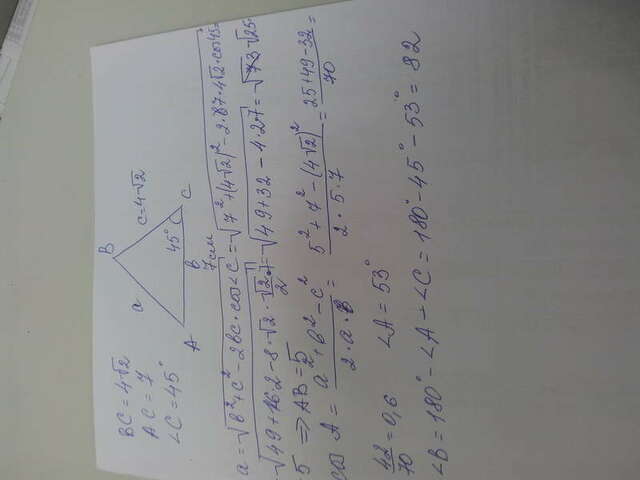 BC = 4√2
AC = 7
∠C = 45°
B
a
c = 4√2
45°
C
A
b
7см
a = √b² + c² - 2bc · cos∠C = √7² + (4√2)² - 2 · 7 · 4√2 · cos45° =
√49 + 16 · 2 - 8 · √2 · √2/2 · 7 = √49 + 32 - 4 · 2 · 7 = √25
5 ⇒ AB = 5
cos A = a² + b² - c² / 2 · a · b = 5² + 7² - (4√2)² / 2 · 5 · 7 = 25 + 49 - 32 / 70 =
42/70 = 0,6 ∠A = 53°
∠B = 180° - ∠A - ∠C = 180° - 45° - 53° = 82